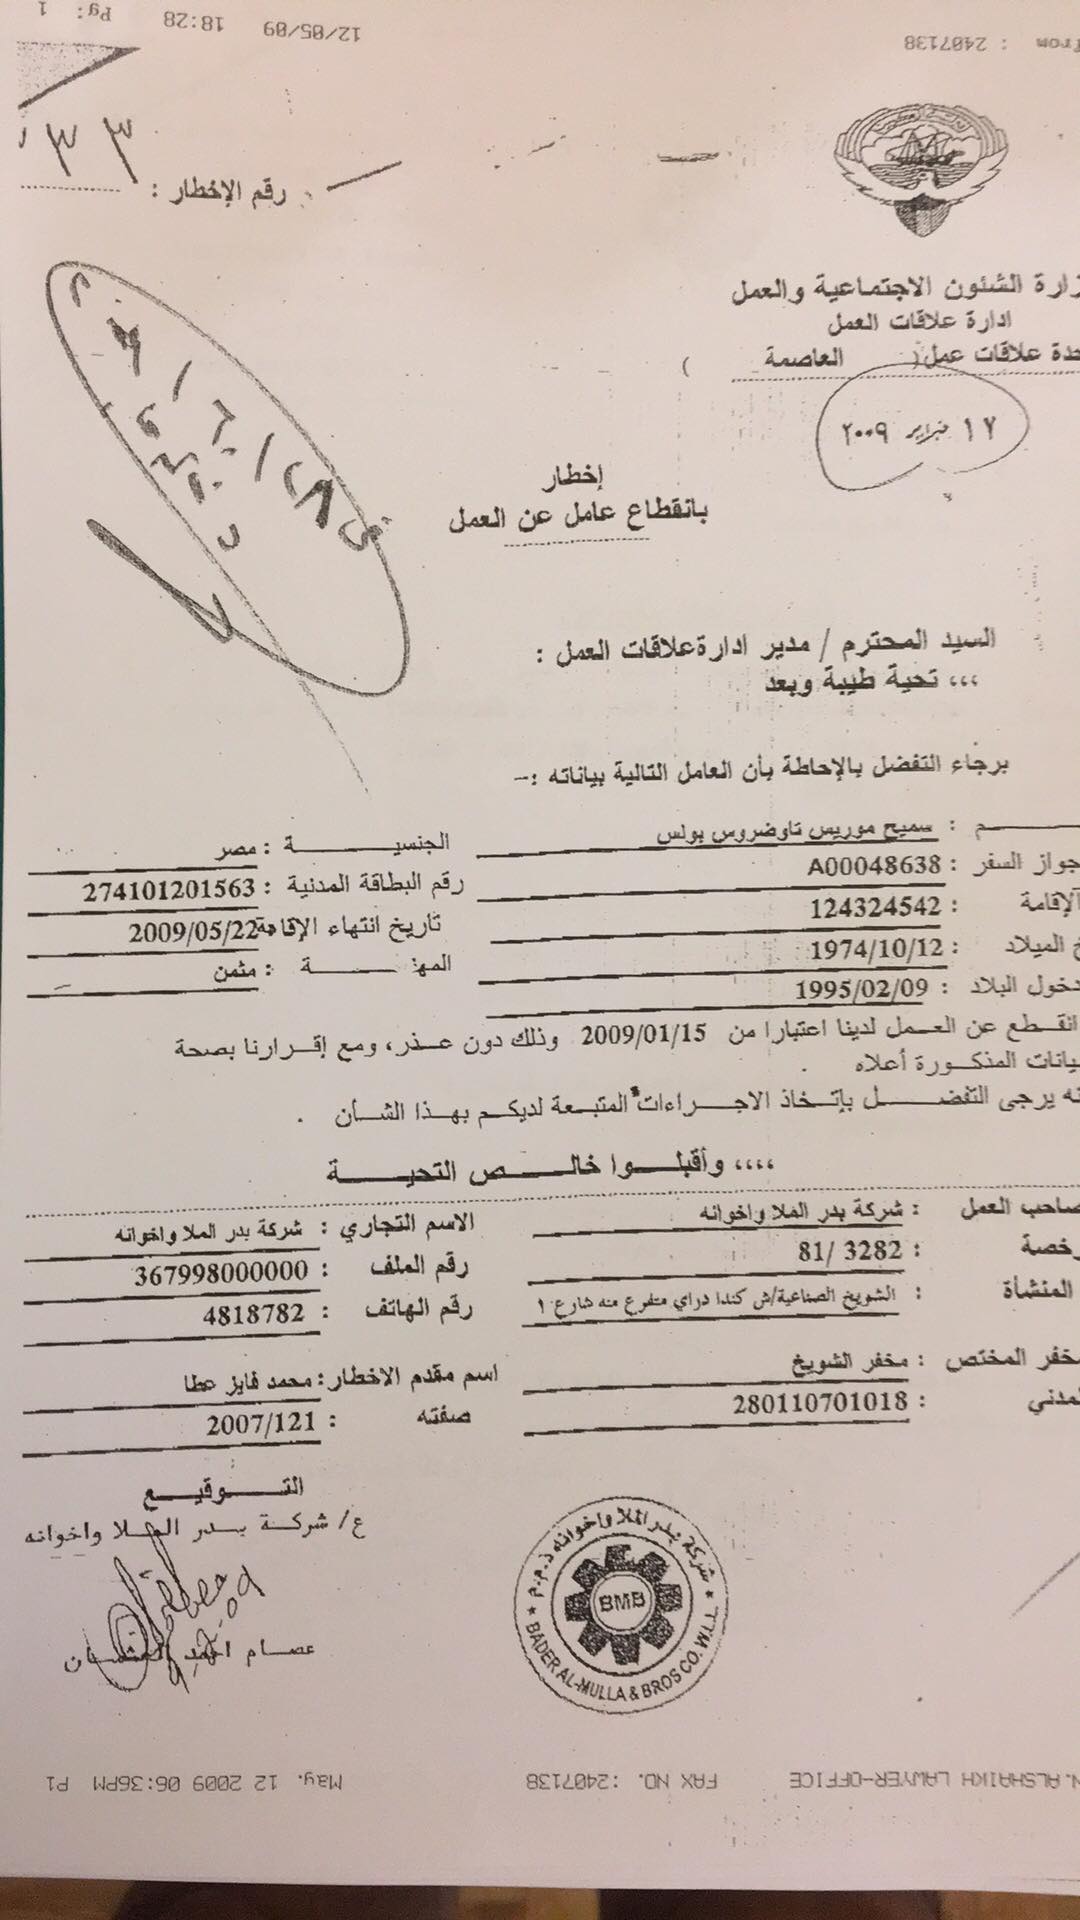 12/05/09 18:28 Pg: 1
: 2407138
رقم الإخطار :
٣٣
زارة الشئون الاجتماعية والعمل
ادارة علاقات العمل
حدة علاقات عمل ( العاصمة )
١٢ فبراير ٢٠٠٩
إخطار
بانقطاع عامل عن العمل
السيد المحترم / مدير ادارة علاقات العمل :
تحية طيبة وبعد ،،،
برجاء التفضل بالإحاطة بأن العامل التالية بياناته :-
ـم : سميح موريس تاوضروس بولس الجنسيـــة : مصر
جواز السفر : A00048638 رقم البطاقة المدنية : 274101201563
الإقامة : 124324542 تاريخ انتهاء الإقامة 2009/05/22
خ الميلاد : 1974/10/12 المهنـــة : مثمن
دخول البلاد : 1995/02/09
انقـطع عن العـمل لدينا اعتبارا من 2009/01/15 وذلك دون عـذر، ومع إقـرارنا بصحة
يانات المذكـورة أعلاه .
نه يرجى التفضـل بإتـخاذ الاجـراءات المتبعة لديكـم بهـذا الشـأن .
،،،، وأقبلـوا خالـص التحيـة
صاحب العمل : شركة بدر الملا واخوانه الاسم التجاري : شركة بدر الملا واخوانه
رخصة : 3282 /81 رقم الملف : 367998000000
المنشأة : الشويخ الصناعية/ش كندا دراي متفرع منه شارع 1 رقم الهاتف : 4818782
مخفر المختص : مخفر الشويخ اسم مقدم الاخطار : محمد فايز عطا
لمدني : 280110701018 صفته : 2007/121
التـوقيـع
ع/ شركـة بـدر الملا واخوانه
عصـام احمد العثمـان
شركة بدر الملا واخوانه ذ.م.م
BMB
BADER AL-MULLA & BROS CO. W.L.L.
N. ALSHAIKH LAWYER-OFFICE FAX NO. :2407138 May. 12 2009 06:36PM P1